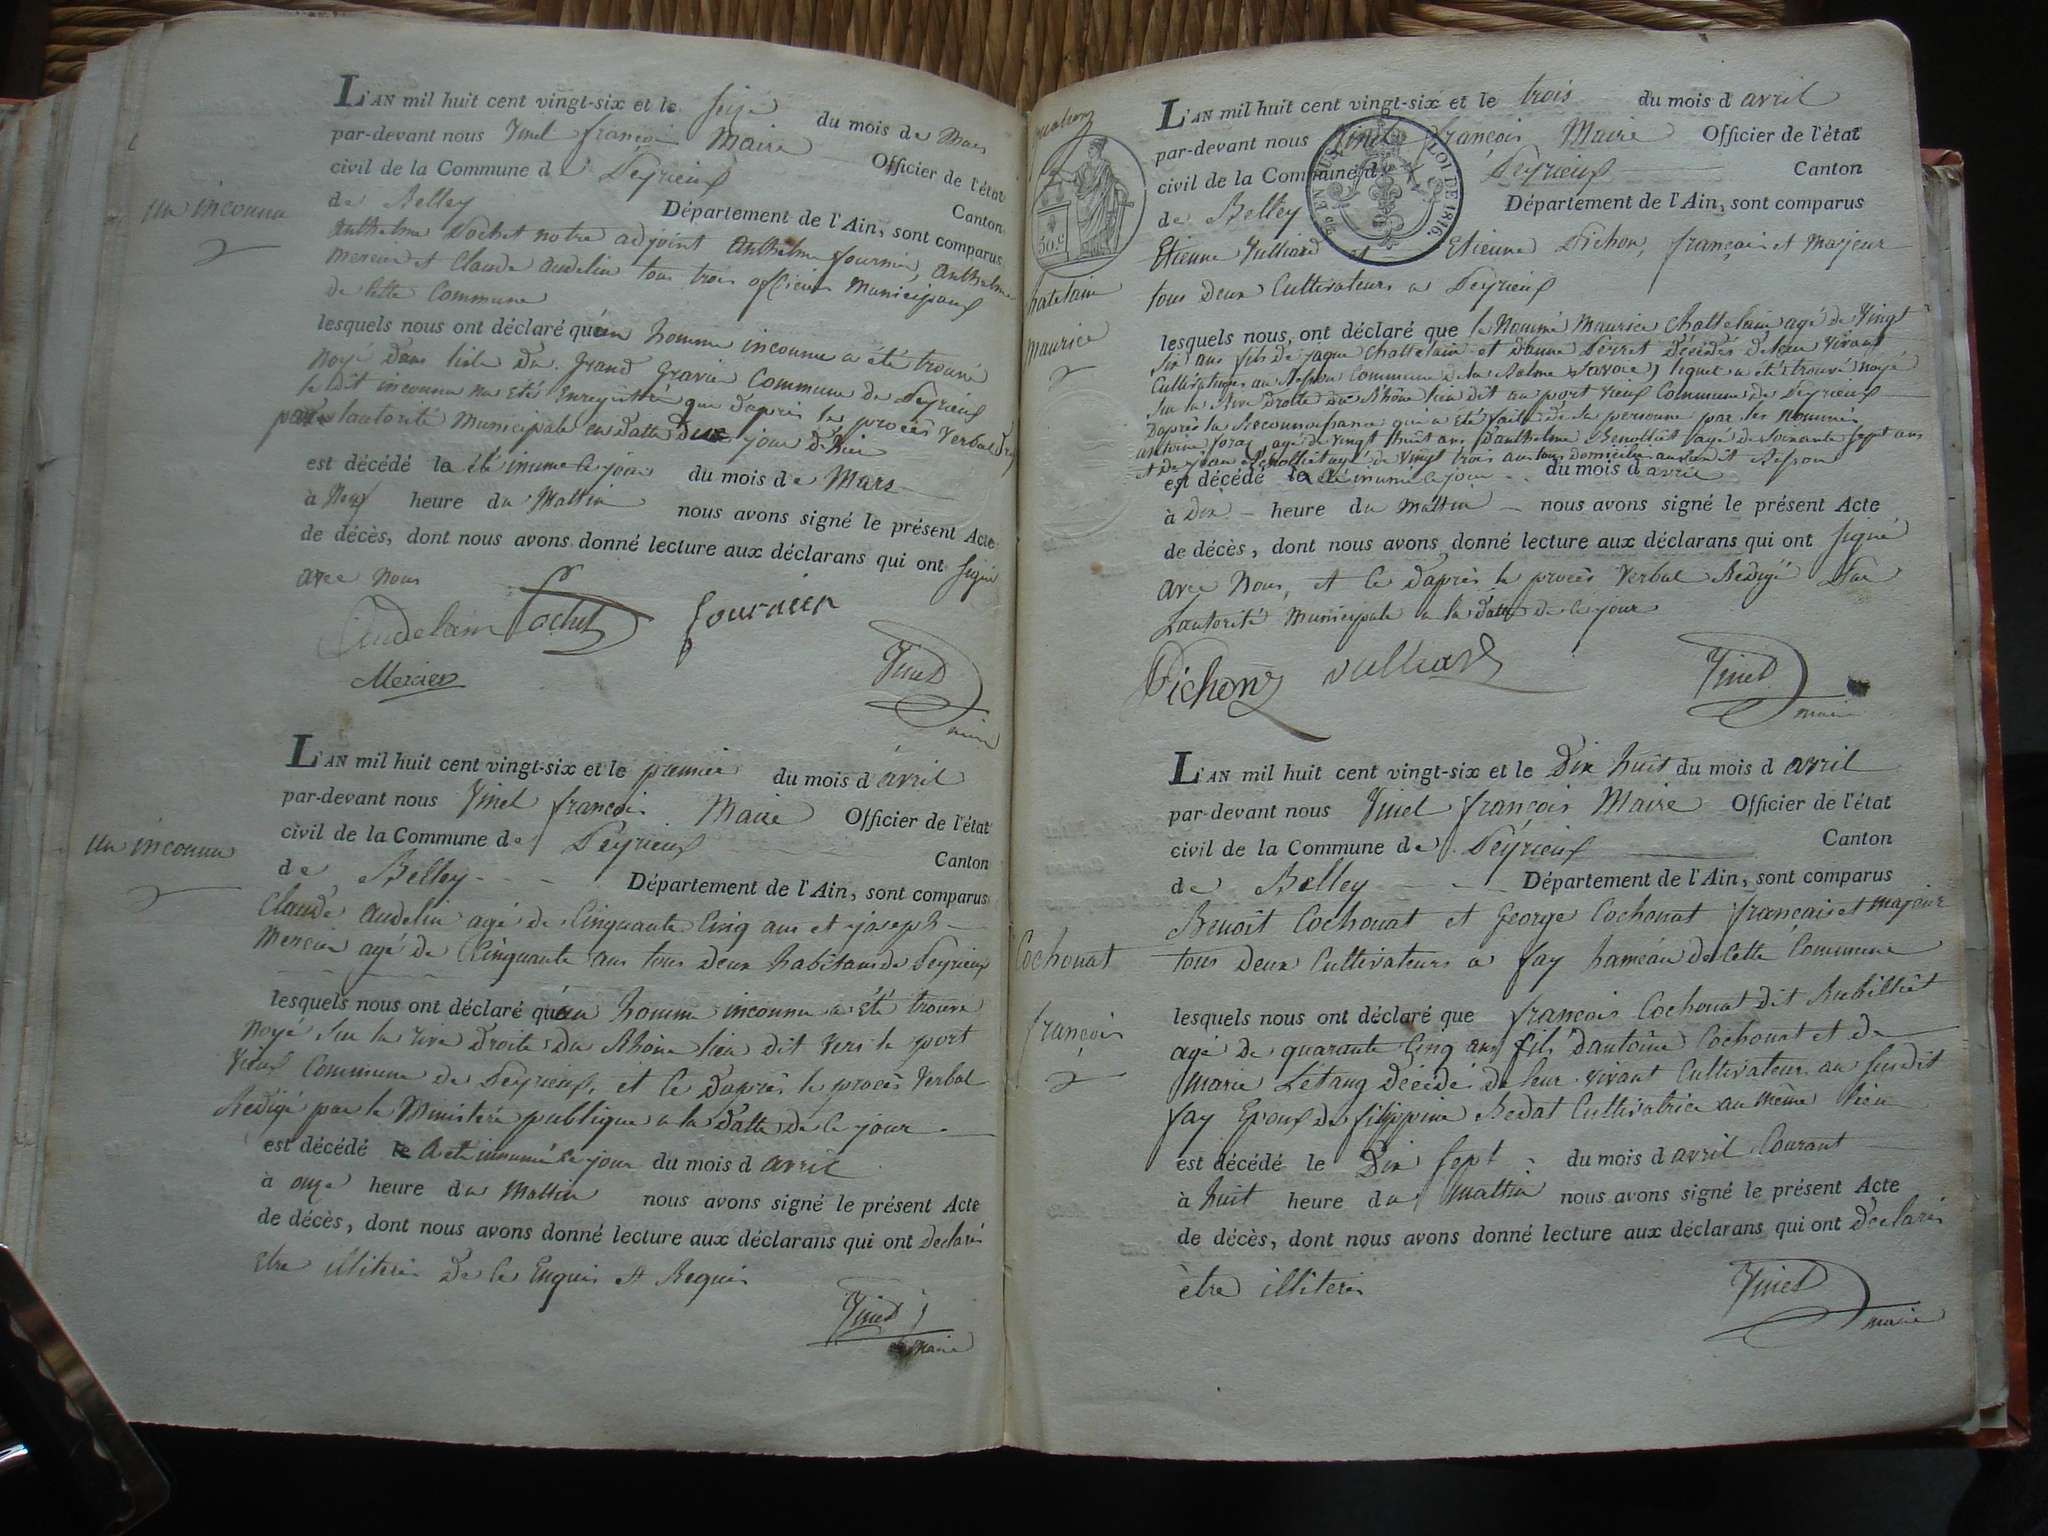 L'AN mil huit cent vingt-six et le seize du mois de Mars
par-devant nous Vinet françois Maire Officier de l'état
civil de la Commune de Peyrieux Canton
de Belley Département de l'Ain, sont comparus
un inconnu
Anthelme Pochet notre adjoint Anthelme fournier, Anthelme
Mercier et Claude Audelin tous trois officiers Municipaux
de Cette Commune
lesquels nous ont déclaré qu'un homme inconnu a été trouvé
Noyé dans lisle du Grand Gravier Commune de Peyrieux
le dit inconnu na Eté Enregistré que daprès le procès Verbal
par lautorité Municipale en datte du jour dhier
est décédé le été inumé le jour du mois de Mars
à Neuf heure du Mattin nous avons signé le présent Acte
de décès, dont nous avons donné lecture aux déclarans qui ont signé
avec nous
Audelain Pochet fournier
Mercier Vinet
maire
L'AN mil huit cent vingt-six et le premier du mois d'avril
par-devant nous Vinet françois Maire Officier de l'état
civil de la Commune de Peyrieux Canton
un inconnu
de Belley Département de l'Ain, sont comparus
Claude Audelin agé de Cinquante Cinq ans et joseph
Mercier agé de Cinquante ans tous deux habitans de Peyrieux
lesquels nous ont déclaré qu'un homme inconnu a été trouvé
Noyé sur la rive Droite du Rhône lieu dit vers le port
vieux Commune de Peyrieux, et ce daprès le procès Verbal
Redigé par le Ministère publique a la datte de ce jour
est décédé le A eté inumé ce jour du mois d avril
à onze heure du Mattin nous avons signé le présent Acte
de décès, dont nous avons donné lecture aux déclarans qui ont declarés
Etre illiteré De ce Enquis et Requis
Vinet
maire
L'AN mil huit cent vingt-six et le trois du mois d avril
par-devant nous Vinet françois Maire Officier de l'état
civil de la Commune d Peyrieux Canton
de Belley Département de l'Ain, sont comparus
LOI DE 1816.
30.c
Etienne Vulliard et Etienne Pichon, français et Majeur
tous deux Cultivateurs a Peyrieux
hatelain
Maurice
lesquels nous ont déclaré que le Nommé Maurice Chattelain agé de Vingt
Six ans fils de jaque Chattelain et danne Perret Décédés de leur vivant
Cultivateurs au Nesson Commune de la Balme Savoie, lequel a été trouvé noyé
sur la Rive Droite du Rhône lieu dit au port vieux Commune de Peyrieux
Daprès la Reconnoissance qui a été faite de sa personne par les Nommés
antoine agé de vingt huit ans danthelme Benolliet agé de soixante sept ans
et de jean Benolliet agé de vingt trois ans tous domiciliés audit Nesson
est décédé le a été inumé ce jour du mois d avril
à Dix heure du Mattin nous avons signé le présent Acte
de décès, dont nous avons donné lecture aux déclarans qui ont signé
avec Nous, et ce daprès le procès Verbal Redigé Par
Lautorité Municipale a la datte de ce jour
Pichon vulliard Vinet
maire
L'AN mil huit cent vingt-six et le Dix huit du mois d avril
par-devant nous Vinet françois Maire Officier de l'état
civil de la Commune de Peyrieux Canton
de Belley Département de l'Ain, sont comparus
Benoît Cochonat et George Cochonat français et majeur
Cochonat
tous deux Cultivateurs a fay hameau de Cette Commune
françois
lesquels nous ont déclaré que françois Cochonat dit Rubilliet
agé de quarante Cinq ans fils d'antoine Cochonat et de
Marie Létang Décédé de leur vivant Cultivateurs au susdit
fay Epoux de filippine Bedat Cultivatrice au même lieu
est décédé le Dix sept du mois d avril Courant
à huit heure du mattin nous avons signé le présent Acte
de décès, dont nous avons donné lecture aux déclarans qui ont déclarés
être illiterés
Vinet
maire